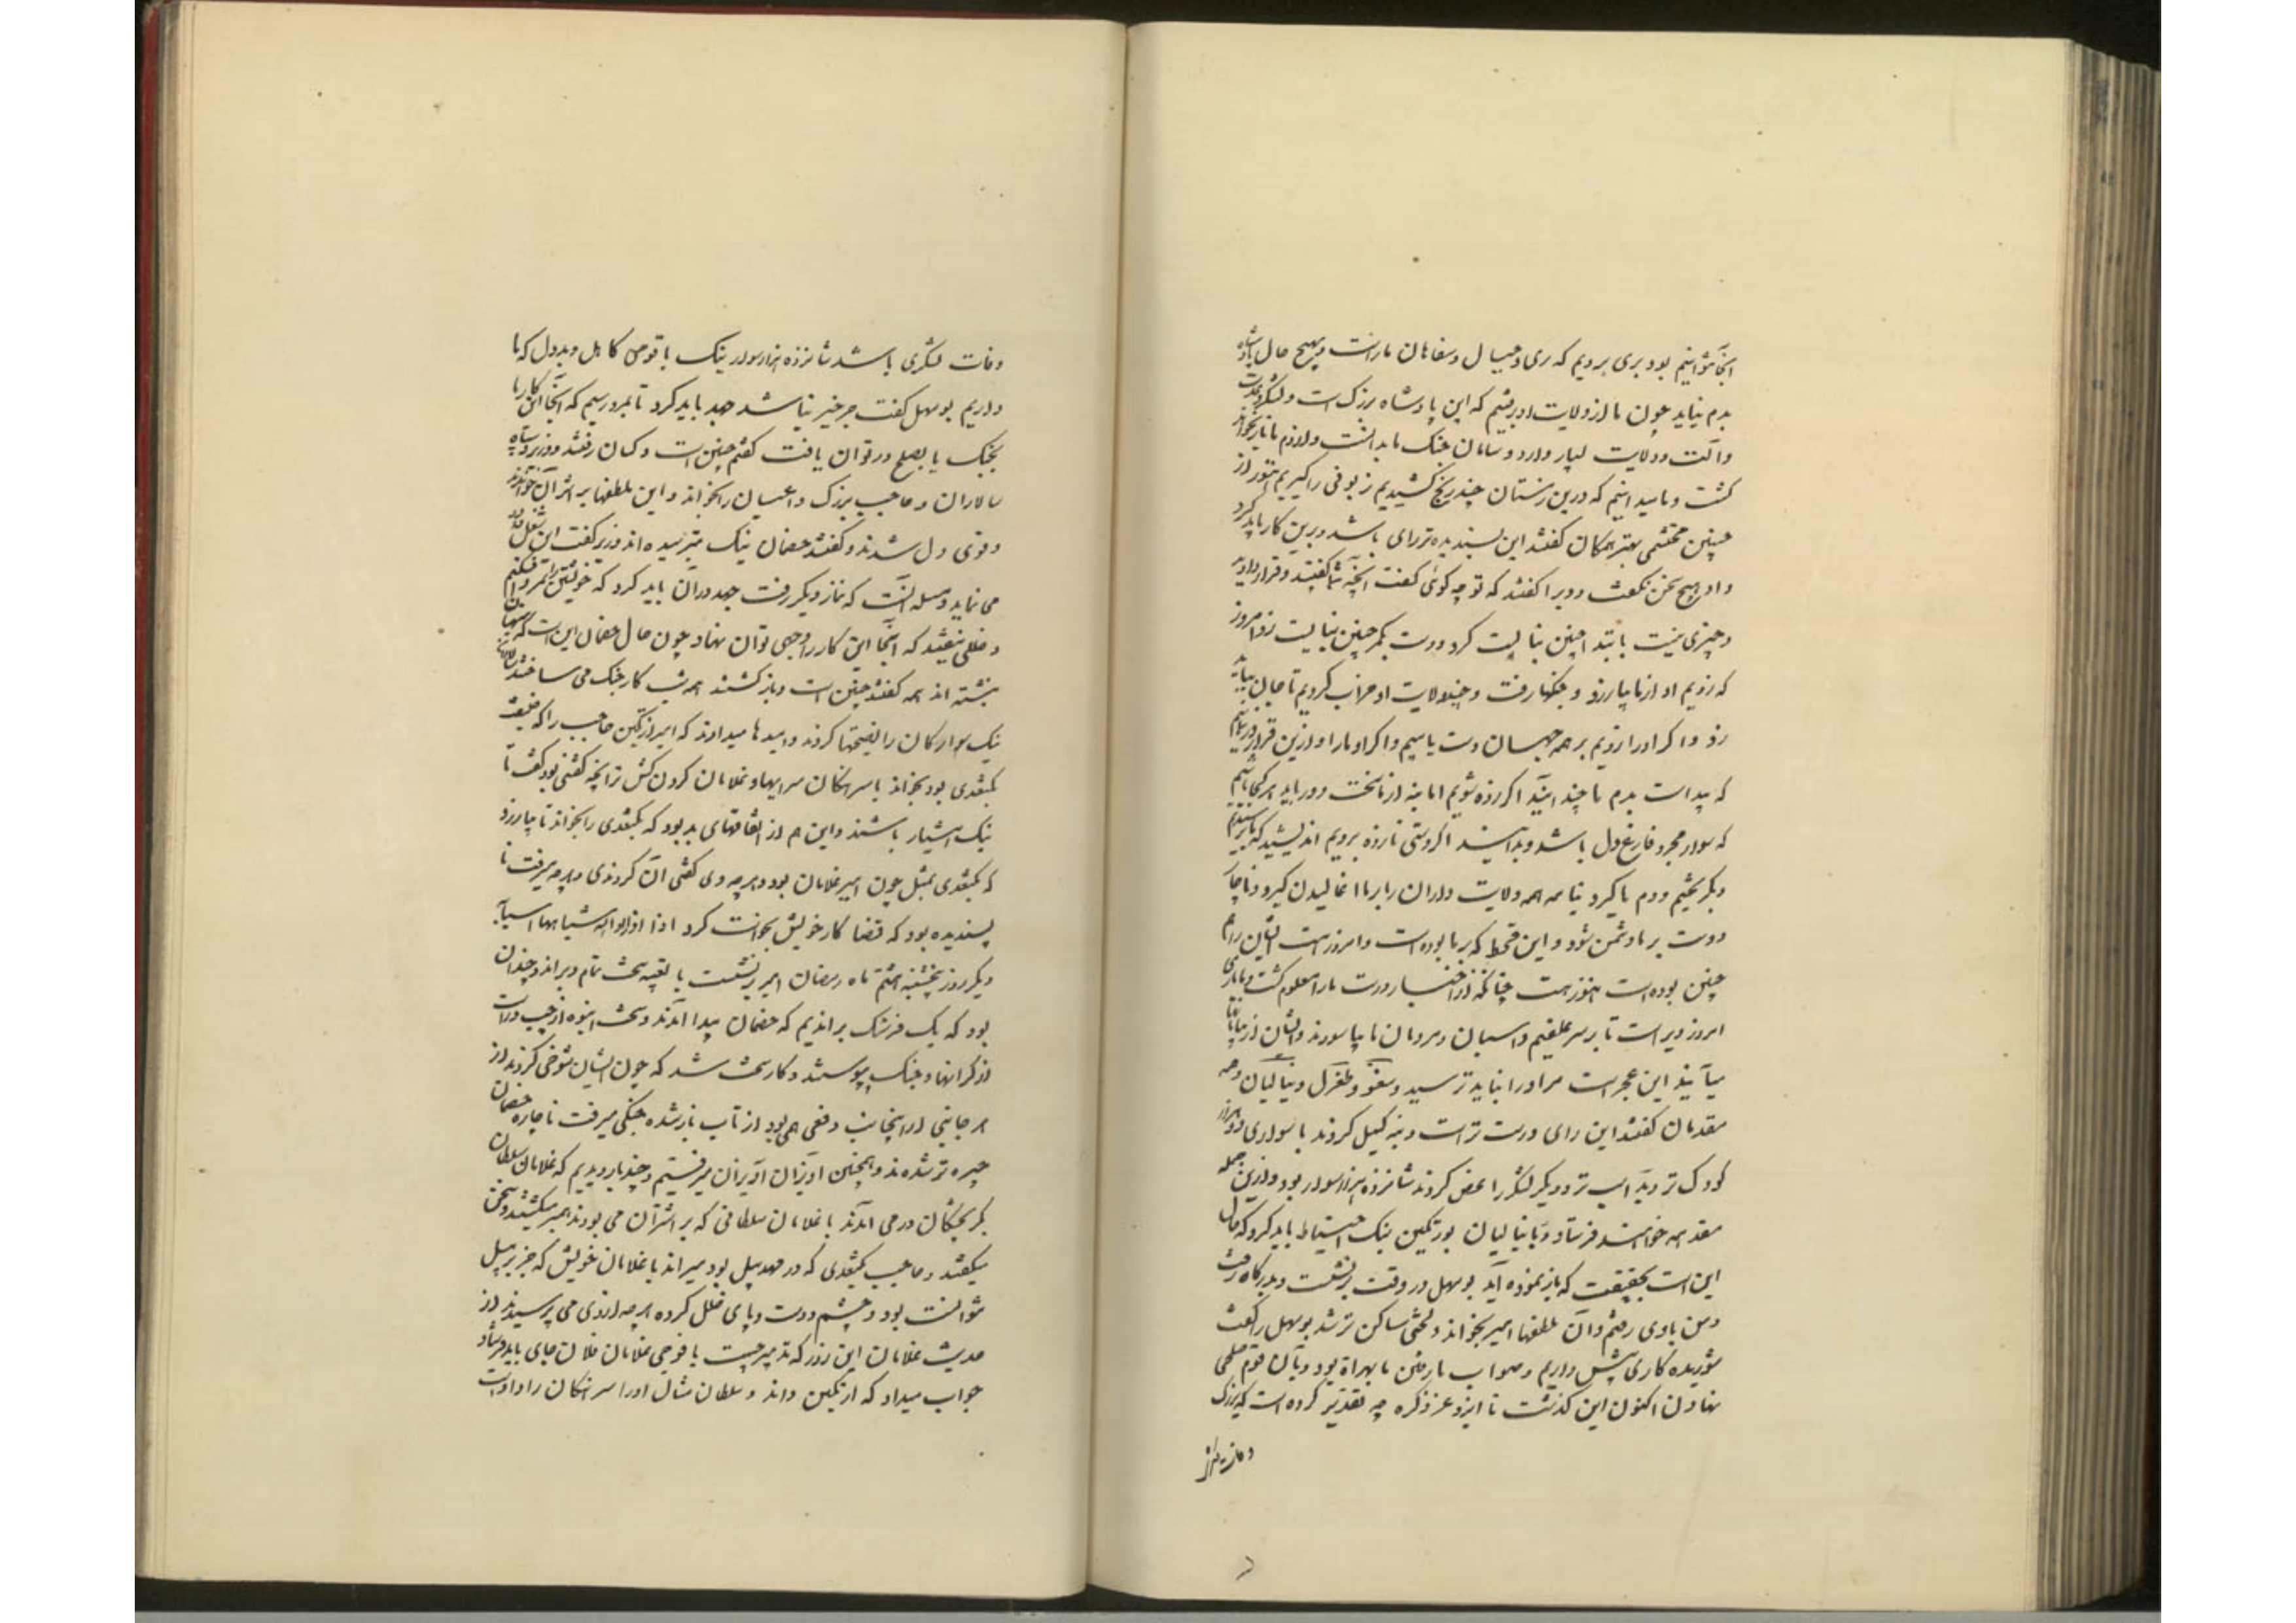 آنجا نتوانیم بود بری برویم که ری و جبال و سفاهان ماراست و بهیچ حال پادشاه
بدم نیاید چون ما از ولایت او برفتیم که این پادشاه بزرگ است و لشکر و عدت
و آلت و ولایت بسیار دارد و سامان جنگ ما بدانست و از دم ما باز نخواهد
گشت و ما میدانیم که درین زمستان چند رنج کشیدیم زبونی را گیریم هنوز از
چنین محتشمی بهتر همگان گفتند این پسندیده‌تر رای باشد و برین کار باید کرد
داود هیچ سخن نگفت و ویرا گفتند که تو چه گوئی گفت آنچه شما گفتید و قرار دادید
و چیزی نیست بابتدا چنین نبایست کرد و دست بکمر چنین نبایست زد امروز
که زدیم او از ما بیازرد و جنگها رفت و چند ولایت او خراب کردیم تا جان بباید
زد و اگر او را زدیم بر همه جهان دست یابیم و اگر او ما را زد ازین قرار در نمانیم
که پیداست بدم ما چند آیند اگر زده شویم اما بنه از ما سخت دور باید هر کجا باشیم
که سوار مجرد فارغ دل باشد و بدانید اگر دستی نازده برویم اندیشد که بترسیدیم
و بگریختیم و دم ما گیرد و بنامه همه ولایت داران را بر ما اغالیدن گیرد و ناچار
دوست بر ما دشمن شود و این قحط که بر ما بوده است و امروز هست ایشان را هم
چنین بوده است و هنوز هست چنانکه از اخبار درست ما را معلوم گشت و ما باری
امروز دیر است تا بر سر علفیم و اسبان و مردمان ما بیاسودند و ایشان از بیابانها
می‌آیند این عجز است مر او را نباید ترسید و یبغو و طغرل و ینالیان و همه
مقدمان گفتند این رای درست‌تر است و بنه گسیل کردند با سواری دو هزار
کودک‌تر و بد اسب‌تر و دیگر لشکر را عرض کردند شانزده هزار سوار بود و ازین جمله
مقدمه خواهند فرستاد و با ینالیان بورتگین نیک احتیاط باید کرد که حال
این است بحقیقت که باز نموده آید بوسهل در وقت برنشست و بدرگاه رفت
و من با وی رفتم و آن ملطفها امیر بخواند و لختی ساکن‌تر شد بوسهل را گفت
شوریده کاری پیش داریم و صواب ما رفتن ما بهراة بود و با آن قوم صلحی
نهادن اکنون این گذشت تا ایزد عز ذکره چه تقدیر کرده است که بزرگ
وفات لشگری باشد شانزده هزار سوار نیک با قومی کاهل و بددل که ما
داریم بوسهل گفت جز خیر نباشد جهد باید کرد تا بمرو رسیم که آنجا این کارها
بجنگ یا بصلح در توان یافت گفتم چنین است و کسان رفتند و وزیر و سپاه
سالاران و حاجب بزرگ و اعیان را بخواند و این ملطفها بر ایشان خواندند
و قوی دل شدند و گفتند خصمان نیک بترسیده‌اند وزیر گفت این شغل
می نماید و مسله آنست که نماز دیگر رفت جهد در آن باید کرد که خویشتن را بمرو افکنیم
و خللی نیفتد که آنجا این کار را وجهی توان نهاد چون حال خصمان این است که
نبشته‌اند همه گفتند چنین است و باز گشتند همه شب کار جنگ می ساختند سالاران
نیک سوارگان را نصیحتها کردند و امیدها میدادند که امیر ارتگین حاجب را که خلیفت
بگتغدی بود بخواند با سرهنگان سرایها و غلامان گردن کش‌تر آنچه گفتنی بود گفت تا
نیک هشیار باشند و این هم از اتفاقهای بد بود که بگتغدی را بخواند تا بیازرد
که بگتغدی بمثل چون امیر غلامان بود و هر چه وی گفتی آن کردندی و هر چه میرفت نا
پسندیده بود که قضا کار خویش بخواست کرد
دیگر روز پنجشنبه هشتم ماه رمضان امیر برنشست با تعبیه سخت تمام و براند و چندان
بود که یک فرسنگ براندیم که خصمان پیدا آمدند و سخت انبوه از چپ و راست
از کرانها و جنگ پیوستند و کار سخت شد که چون ایشان شوخی کردند از
هر جانبی از اینجانب دفعی همی بود از تاب باز شده جنگی میرفت ناچاره خصمان
چیره‌تر شدند و همچنین آویزان آویزان میرفتیم و چند بار دیدیم که غلامان سلطان
بگریختگان در می آمدند با غلامان سلطانی که بر اشتران می بودند همبر میگشتند و سخن
میگفتند و حاجب بگتغدی که در مهد پیل بود میراند با غلامان خویش که جز بر پیل
نتوانست بود و چشم و دست و پای خلل کرده هر چه از وی می پرسیدند از
حدیث غلامان این روز که تدبیر چیست یا فوجی غلامان فلان جای باید فرستاد
جواب میداد که ارتگین داند و سلطان مثال او را و سرهنگان را داده است